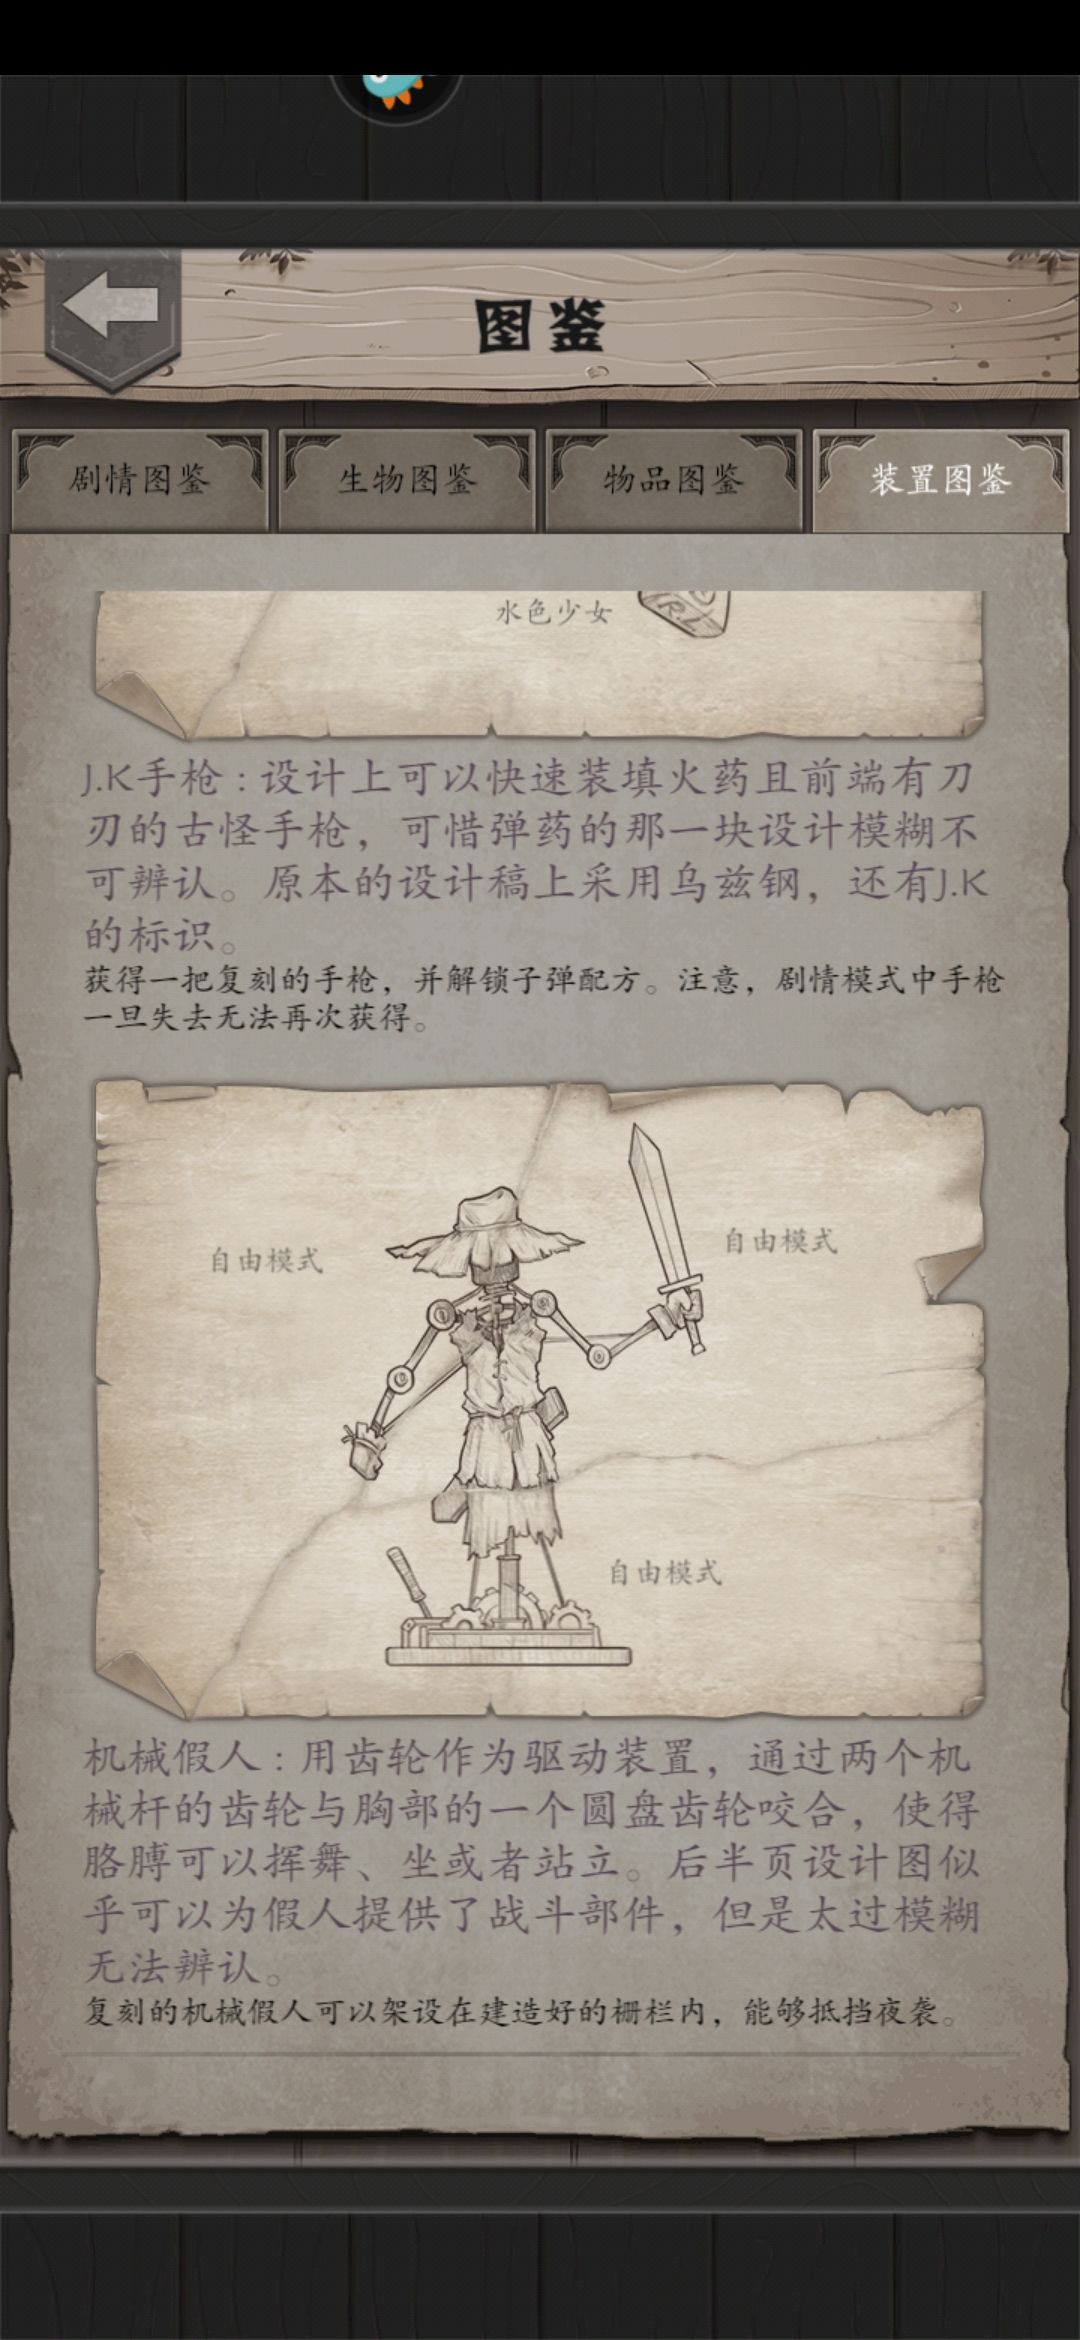 图鉴
剧情图鉴
生物图鉴
物品图鉴
装置图鉴
水色少女
J.K手枪：设计上可以快速装填火药且前端有刀
刃的古怪手枪，可惜弹药的那一块设计模糊不
可辨认。原本的设计稿上采用乌兹钢，还有J.K
的标识。
获得一把复刻的手枪，并解锁子弹配方。注意，剧情模式中手枪
一旦失去无法再次获得。
自由模式
自由模式
自由模式
机械假人：用齿轮作为驱动装置，通过两个机
械杆的齿轮与胸部的一个圆盘齿轮咬合，使得
胳膊可以挥舞、坐或者站立。后半页设计图似
乎可以为假人提供了战斗部件，但是太过模糊
无法辨认。
复刻的机械假人可以架设在建造好的栅栏内，能够抵挡夜袭。